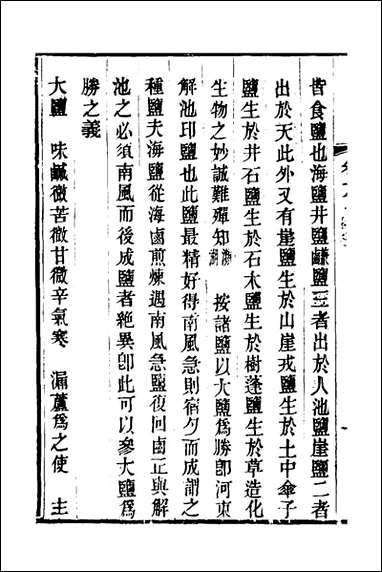 皆食鹽也海鹽井鹽鹻鹽三者出於人池鹽崖鹽二者
出於天此外又有崖鹽生於山崖戎鹽生於土中傘子
鹽生於井石鹽生於石木鹽生於樹蓬鹽生於草造化
生物之妙誠難殫知 瀕湖 按諸鹽以大鹽爲勝卽河東
解池印鹽也此鹽最精好得南風急則宿夕而成謂之
種鹽夫海鹽從海鹵煎煉遇南風急鹽復回鹵正與解
池之必須南風而後成鹽者絶異卽此可以參大鹽爲
勝之義
大鹽 味鹹微苦微甘微辛氣寒 漏蘆爲之使 主